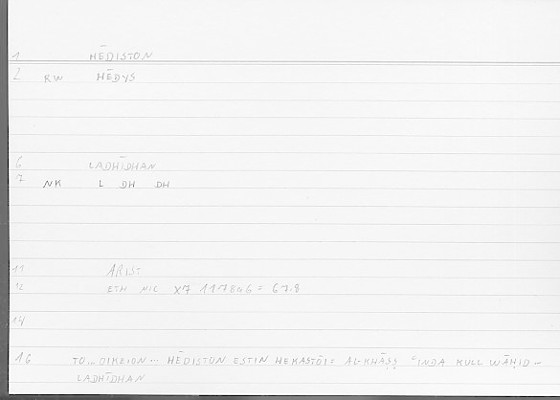 1 HĒDISTON
2 RW HĒDYS
6 LADHĪDHAN
7 NK L DH DH
11 ARIST
12 ETH NIC X7 1178a6 = 67.8
14
16 TO... OIKEION ... HĒDISTON ESTIN HEKASTŌI: AL-KHĀṢṢ ʿINDA KULL WĀḤID ...
LADHĪDHAN